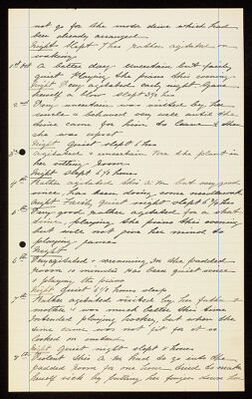 not go for the motor drive which had
been already arranged
Night Slept 7 hrs Rather agitated on
waking
1st A better day uncertain but fairly
quiet Playing the piano this evening.
Night Very agitated early night. Gave
herself a blow slept 3 3/4 hrs
2nd Very uncertain was visited by her
uncle & behaved very well until the
time came for him to leave & then
she was upset
Night Quiet slept 6 hrs
3rd Agitated & uncertain Tore the plant in
her sitting room
Night
4th Rather agitated this A.M but very good
since, has been doing some needlework
Night Fairly Quiet night slept 6 3/4 hrs
5th Very good rather agitated for a short
time, playing the piano this evening
but will not give her mind to
playing games
Night
6th Very agitated & screaming, in the padded
room 10 minutes has been quiet since
& playing the piano
Night Quiet 6 1/2 hours sleep
7th Rather agitated visited by her father &
mother & was much better this time
Intended playing hockey but when the
time came was not fit for it so
looked on instead
Night Quiet night slept 8 hours
8th Violent this A.M Had to go into the
padded room for one hour tried to make
herself sick by putting her finger down her